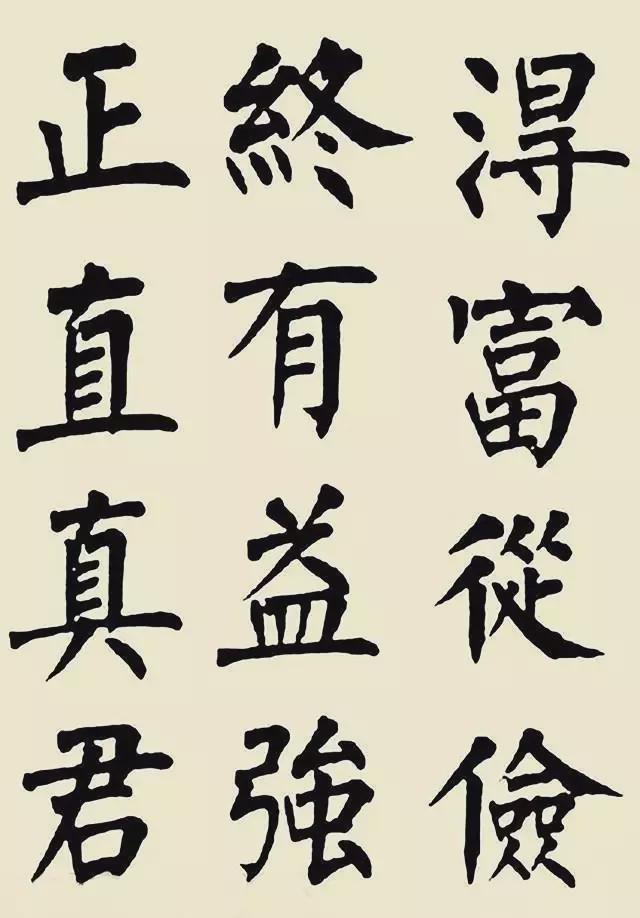 淂富從儉
終有益強
正直真君